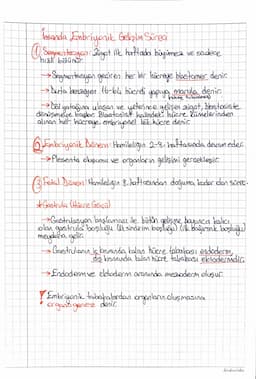 İnsanda Embriyonik Gelişim Süreci
① Segmentasyon: Zigot ilk haftada büyümez ve sadece
hızlı bölünür.
→ Segmentasyon geçiren her bir hücreye blastomer denir.
→ Daha sonra 16-lı hücreli yapıya morula denir.
→ Döl yatağına ulaşan ve yeterince gelişen zigot, blastosiste
dönüşmeye başlar. Blastosist içindeki hücre kümelerinden
alınan her hücreye embriyonel kök hücre denir.
② Embriyonik Dönem: Hamileliğin 2-8. haftasında devam eder.
→ Plasenta oluşumu ve organların gelişimi gerçekleşir.
③ Fetal Dönem: Hamileliğin 8. haftasından doğuma kadar olan süreç.
* Gastrula (Hücre Göçü)
→ Gastrulasyon başlanması ile bütün gelişme boyunca kalıcı
olan gastrula boşluğu (ilk sindirim boşluğu) (ilk bağırsak boşluğu)
meydana gelir.
→ Gastrulanın iç kısmında kalan hücre tabakası endoderm,
dış kısmında kalan hücre tabakası ektodermdir.
→ Endoderm ve ektoderm arasında mezoderm oluşur.
! Embriyonik tabakalardan organların oluşmasına
organogenez denir.